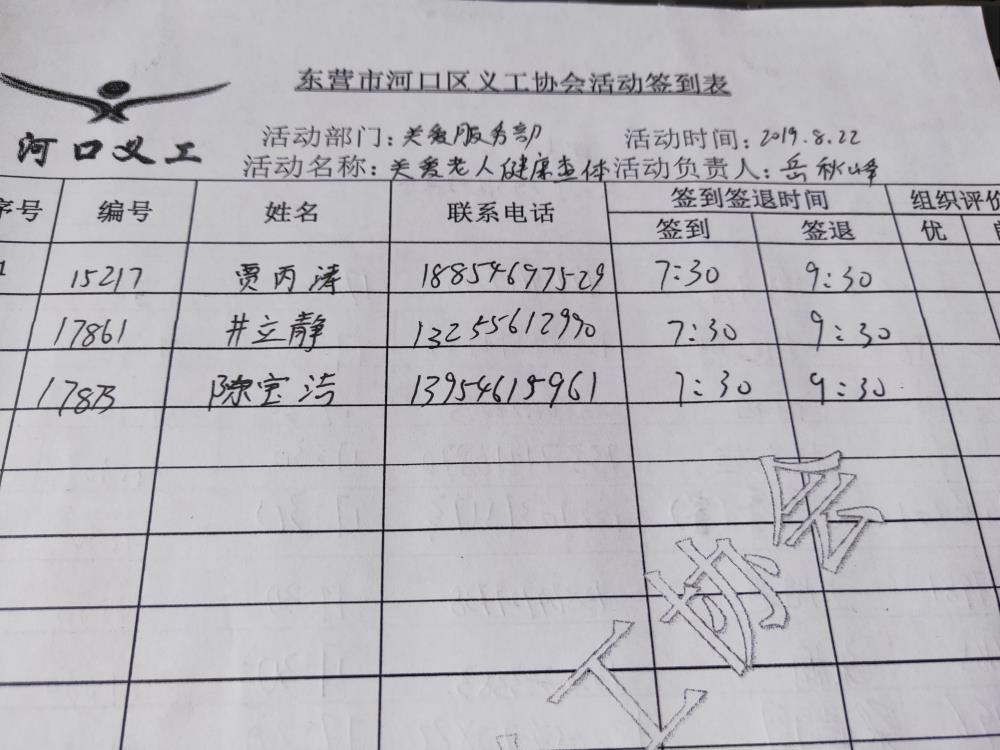 东营市河口区义工协会活动签到表
河口义工
活动部门:关爱服务部 活动时间:2019.8.22
活动名称:关爱老人健康查体 活动负责人:岳秋峰
序号 编号 姓名 联系电话 签到签退时间 组织评价
签到 签退 优
1 15217 贾丙涛 18854697529 7:30 9:30
17861 井立静 13255612990 7:30 9:30
17873 陈宝洁 13954615961 7:30 9:30
工协